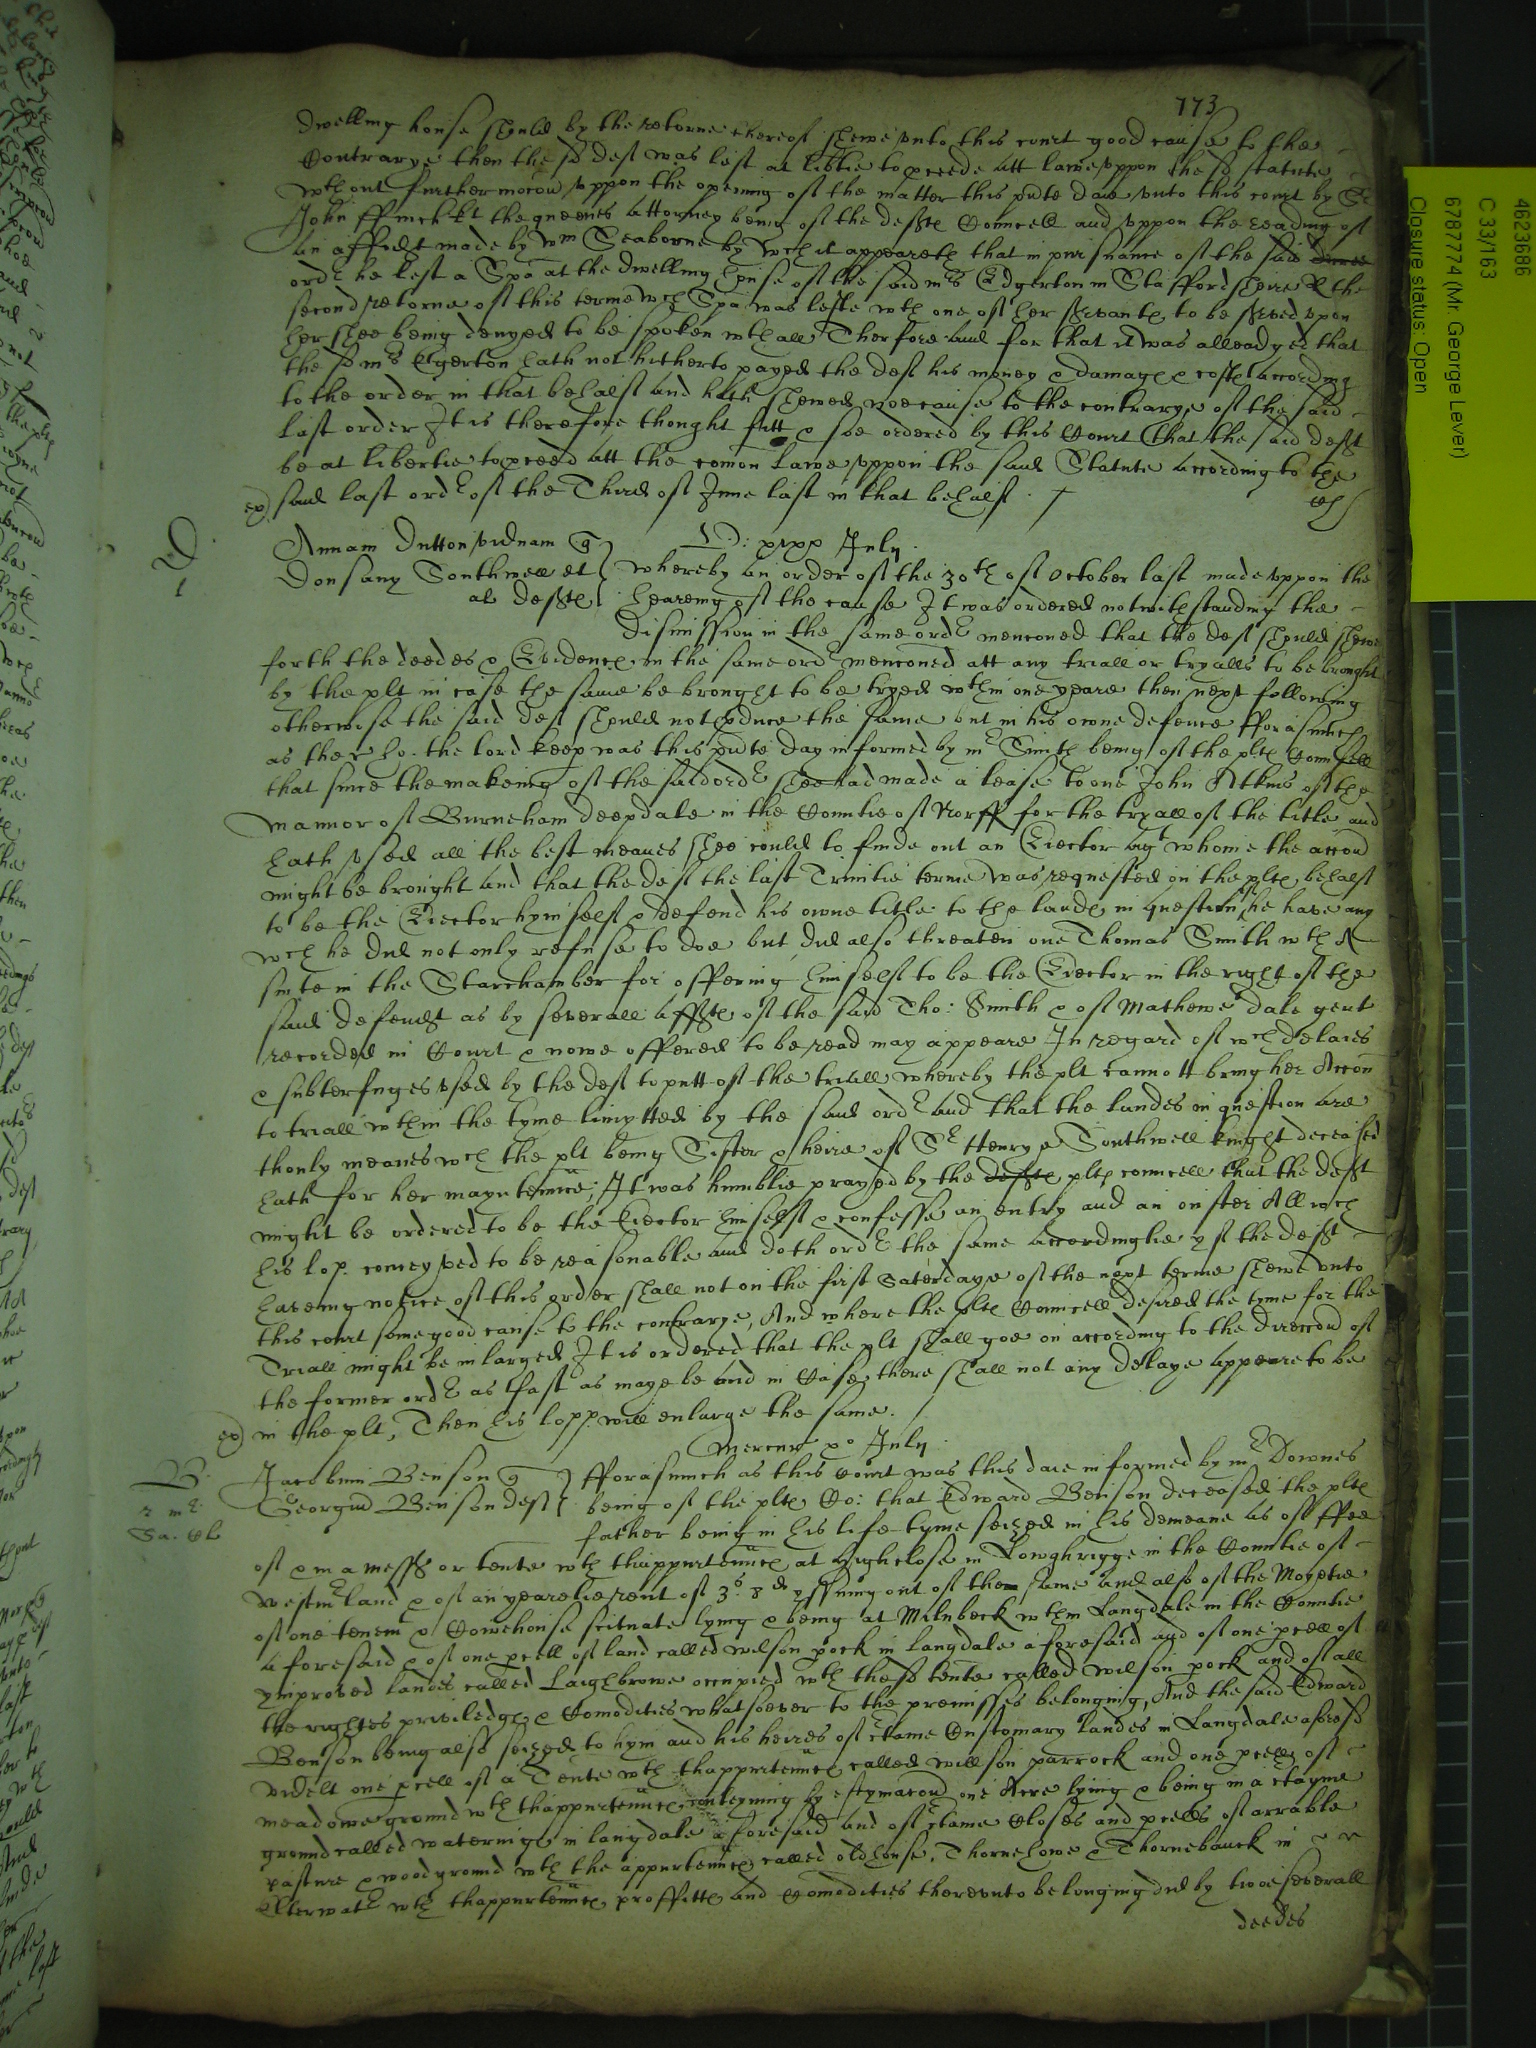 773
dwelling house should by the retorne thereof shewe unto this court good cause to the
Contrarye then the sd deft was left at libtie to pceede att lawe uppon the sd statute
wthout further mocon uppon the opening of the matter this pnte daie unto this court by Sr
John ffinch kt the queenes Attorney being of the defts Councell and uppon the reading of
an affidt made by Wm Seaborne by wch it appeareth that in pursuance of the said
ordr he left a Spa at the dwelling house of the said mrs Edgerton in Staffordshire the
second retorne of this terme wch Spa was lefte wth one of her servants to be served upon
her shee being denyed to be spoken wthall Therfore and for that it was alleadged that
the sd mrs Egerton hath not hitherto payed the deft his money & damage & costs according
to the order in that behalf and hath shewed noe cause to the contrarye of the said
last order It is therefore thought fitt & soe ordered by this Court that the said deft
be at libertie to pceed att the comon lawe uppon the said Statute according to the
said last ordr of the Third of June last in that behalf
Annam Dutton viduam
Dunsany Southwell et
al defts
July
whereby an order of the 30th of October last made uppon the
heareing of the cause It was ordered notwithstanding the
dismission in the same ordr menconed that the deft should shewe
forth the deedes & Evidences in the same ordr menconed att any triall or tryalls to be brought
by the plt in case the same be brought to be tryed wthin one yeare then next following
otherwise the said deft should not pduce the same but in his owne defence fforasmuch
as the ho: the lord keep was this pnte day informed by mr Smith being of the plts Councell
that since the makeing of the said ordr shee had made a lease to one John Atkins of the
mannor of Burneham deepdale in the Countie of Norff for the tryall of the title and
hath used all the best meanes shee could to finde out an Eiector agt whome the accon
might be brought and that the deft the last Trinitie terme was requested on the plts behalf
to be the Eiector hymself & defend his owne title to the lands in question he have any
wch he did not only refuse to doe but did also threaten one Thomas Smith wth A
suite in the Starchamber for offering himself to be the Eiector in the right of the
said defendt as by severall affts of the said Tho: Smith & of Mathewe dale gent
recorded in Court & nowe offered to be read may appeare In regard of wch delaies
& subterfuges used by the deft to putt of the triall whereby the plt cannott bring her Accon
to triall wthin the tyme limytted by the said ordr and that the landes in question are
thonly meanes wch the plt being Sister & heire of Sr Henrye Southwell knight deceased
hath for her mayntennce; It was humblie prayed by the defts plts councell that the deft
might be ordered to be the Eiector himself & confesse an entry and an ouster All wch
his lop. conceyved to be reasonable and doth ordr the same accordinglie yf the deft
haveing notice of this order shall not on the first Saterdaye of the next terme shewe unto
this court some good cause to the contrarye, And where the plts Councell desired the tyme for the
Triall might be inlarged It is ordered that the plt shall goe on according to the direccon of
the former ordr as fast as maye be and in Case there shall not any delaye appeare to be
in the plt, Then his lopp. will enlarge the same.
Mercur xo July
B
Jacobum Benson
Georgiu Benson deft
fforasmuch as this Court was this daie informed by mr Downes
being of the plts Co: that Edward Benson deceased the plts
father being in his life tyme seized in his demeane as of ffee
of & in a messe or tente wth thappurtennces at highclose in Loughrigge in the Countie of
Westmrland & of an yearelie rent of 3s. 8d yssuing out of the same and also of the Moyetie
of one tenemt & Cowehouse scituate lying & being at Milnbeck wthin Langdale in the Countie
aforesaid & of one pcell of land called Wilson pock in langdale aforesaid and of one pcell of
ymproved landes called Laighbrowe occupied wth the sd tente called Wilson pock and of all
the rightes priviledges & Comodities whatsoever to the premisses belonging, And the said Edward
Benson being also seized to hym and his heires of ctaine Customary landes in Langdale aforesd
vidzt one pcell of a Tente wth thappurtennces called Willson parrock and one pcell of
meadowe ground wth thappurtennces conteyning by estymacon one Acre lying & being in a ctayne
ground called watering in langdale aforesaid and of ctaine Closes and pcells of arrable
pasture & wood ground wth the appurtennces called old house, Thornehowe & Thornebanck in
Elterwatr wth thappurtennces proffitts and Comodities thereunto belonging did by twoe severall
deedes
4623686
C 33/163
6787774 (Mr. George Lever)
Closure status: Open